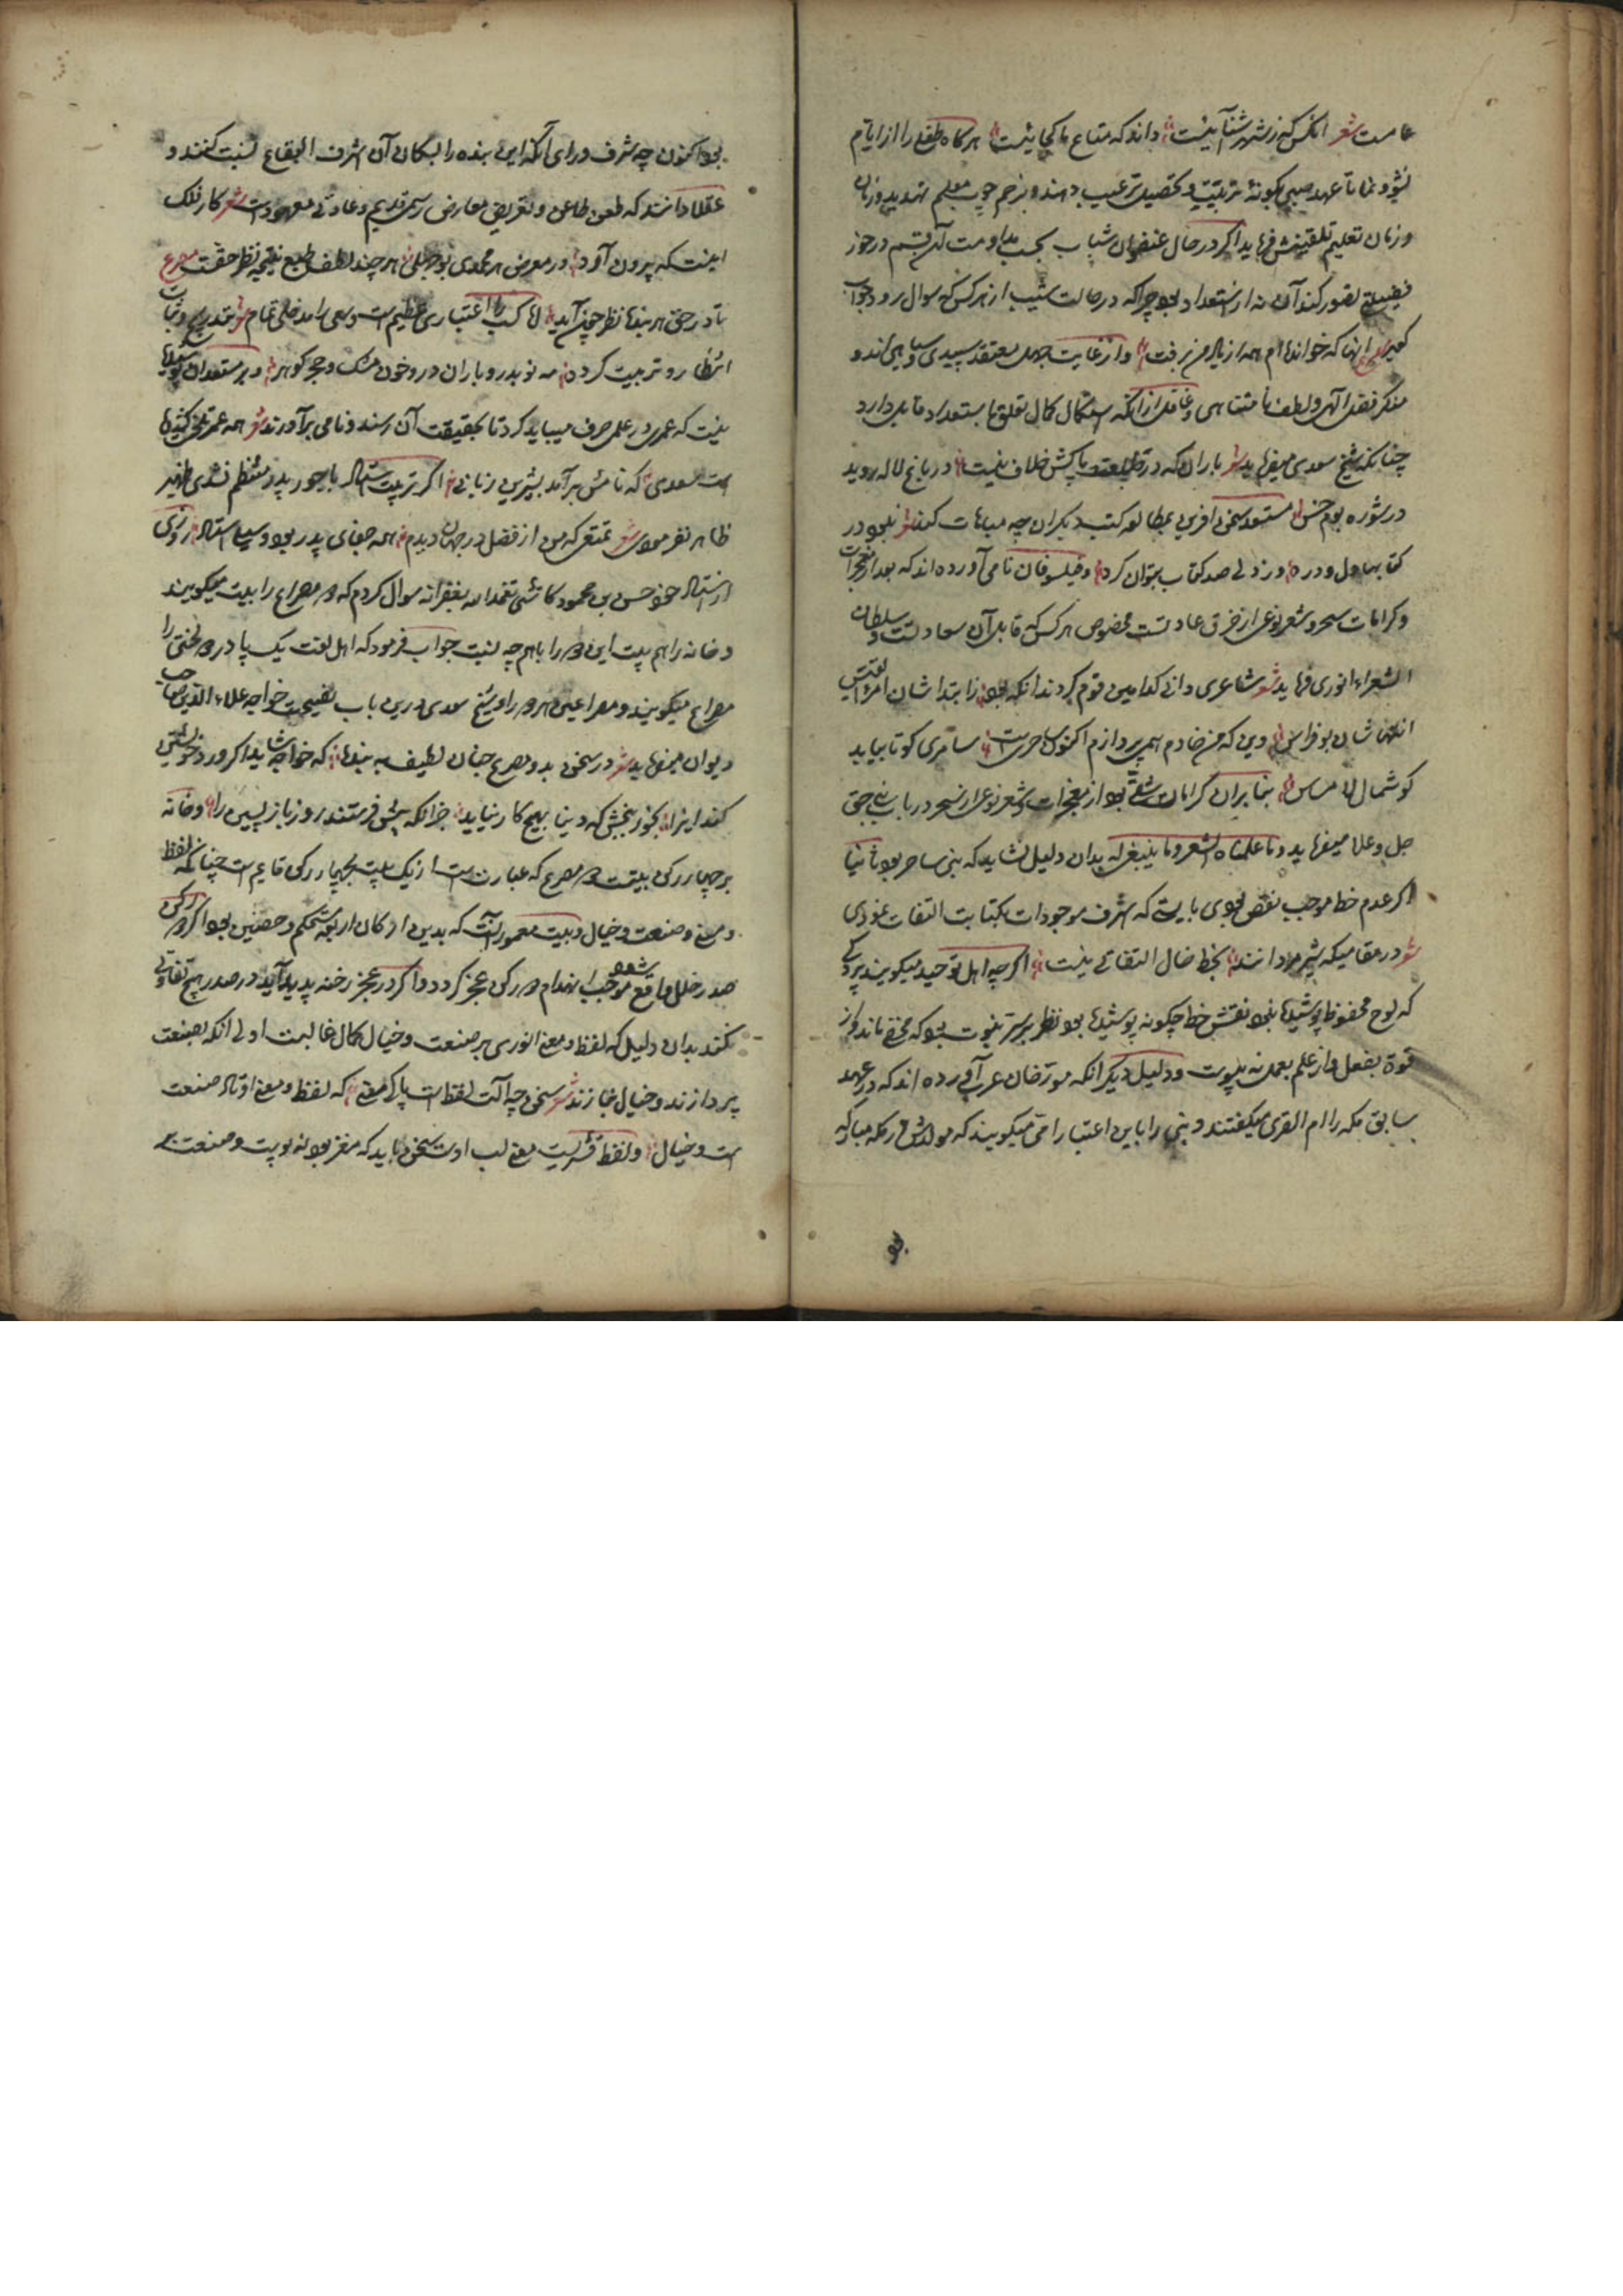 عامست شعر انکس که ز شهر آشنائیست داند که متاع ما کجائیست هر کاه طفلی را از ایام
نشو و نما تا عهد صبی بکونهٔ تربیت و تحصیل ترغیب دهند و بزخم چوب معلم تهدید و زبان
و زمان تعلیم تلقینش فرماید اکر در حال عنفوان شباب بحسب مداومت آن قسم در حوز
فضیلتی تصور کند آن نه از استعداد بود چرا که در حالت شیب از هر کس که سوال رود جواب
کوید انها که خوانده‌ام همه از یاد من برفت و از غایت جهل معتقد سپیدی و سیاهی‌اند و
منکر فضل آلهی و لطف نامتناهی و غافل از انکه استکمال کمال تعلق باستعداد قابل دارد
چنانکه شیخ سعدی میفرماید شعر باران که در لطافت طبعش خلاف نیست در باغ لاله روید
در شوره بوم خس مستعد سخن آفرین بمطالعه کتب دیکران چه مباهات کند شعر نبود در
کتابها دل و در دو زدلی صد کتاب بتوان کرد و فیلسوفان نامی آورده‌اند که بعد از معجزات
و کرامات سحر و شعر نوعی از خرق عادتست مخصوص هر کس که قابل آن سعادتست و سلطان
الشعراء انوری فرماید شعر شاعری دانی کدامین قوم کردند انکه بود ابتداشان امرؤ القیس
انتهاشان بو فراس وین که من خادم همی پردازم اکنون ساحریست سامری کو تا بیاید
کوشمال لا مساس بنابران کرامات شقی بود از معجزات و شعر نوعی از سحر در باب نبی حق
جل و علا میفرماید و ما علمناه الشعر و ما ینبغی له بدان دلیل نشاید که نبی ساحر بود ثانیا
اکر عدم خط موجب نقص بودی بایستی که اشرف موجودات بکتابت التفات نمودی
شعر در مقامیکه شیر مردانند بخط و خال التفاتی نیست اکرچه اهل توحید میکویند بر وی
که لوح محفوظ پوشیده نبود نقش خط چکونه پوشیده بود نظر بر سر نبوت بود که مخفی ماند و از
قوة بفعل و از علم بعمل نه پیوست و دلیل دیکر انکه مورخان عرب آورده‌اند که در عهد
سابق مکه را ام القری میکفتند و نبی را باین اعتبار امی میکویند که مولدش در مکه مبارکه
بود
بود اکنون چه شرف ورای آنکه این بنده را بسکان آن اشرف البقاع نسبت کنند و
عقلا دانند که طعن طاعن و تعریض معارض رسمی قدیم و عادتی معهودست شعر کار فلک
اینست که بیرون آورد در معرض هر محمدی بوجهلی هر چند لطف طبع نتیجه نظر حقست مصرع
تا در حق هر بنده نظر چون آید اما کسب را اعتباری عظیم است و سعی را مدخلی تمام شعر بتدریج و ثبات
انتظار و تربیت کردد مه نو بدر و باران در و خون مشک و حجر کوهر و بر مستعدان پوشیده
نیست که عمری در علمی صرف میباید کرد تا بحقیقت آن رسند و نامی برآورند شعر همه عمر تلخی کشیده
است سعدی که نامش برآمد بشیرین زبانی اکر تربیت استاد با جور پدر منتظم نشدی ظهیر
ظاهر نفرمودی شعر تمتعی که من از فضل در جهان دیدم همه جفای پدر بود و سیلی استاد روزی
از استاد خود حسن بن محمود کاشی تغمد الله بغفرانه سوال کردم که دو مصراع را بیت میکویند
و خانه را هم بیت این دو را باهم چه نسبت جواب فرمود که اهل لغت یک پا در دو لختی را
مصراع میکویند و مصراعین هر دو را و شیخ سعدی درین باب نصیحت خواجه علاء الدین صاحب
دیوان میفرماید شعر در سخن بدو مصرع چنان لطیف ببندم که خواجه شاید اکر ورد خویشتن
کند اینرا بخور ببخش که دنیا بهیچ کار نیاید جز انکه پیش فرستند روز باز پسین را و خانه
بر چهار رکن بیتست و دو مصرع که عبارتست از یک بیت بچهار رکن قایم است چنانکه لفظ
و معنی و صنعت و خیال و بیت معمور آنست که بدین ارکان اربعه مستحکم و حصین بود اکر در رکن
صدر خللی واقع شود موجب انهدام دو رکن عجز کردد و اکر در عجز رخنه پدید آید در صدر هیچ تفاوتی
نکند بدان دلیل که لفظ و معنی انوری بر صنعت و خیال کمال غالبست اولی انکه بصنعت
پردازند و خیال بیازند شعر سخن چه آلت لفظ است پاکی معنی که لفظ و معنی اوتاد صنعت
است و خیال و لفظ قشریست معنی لب او سخن باید که مغز بود نه پوست و صنعت